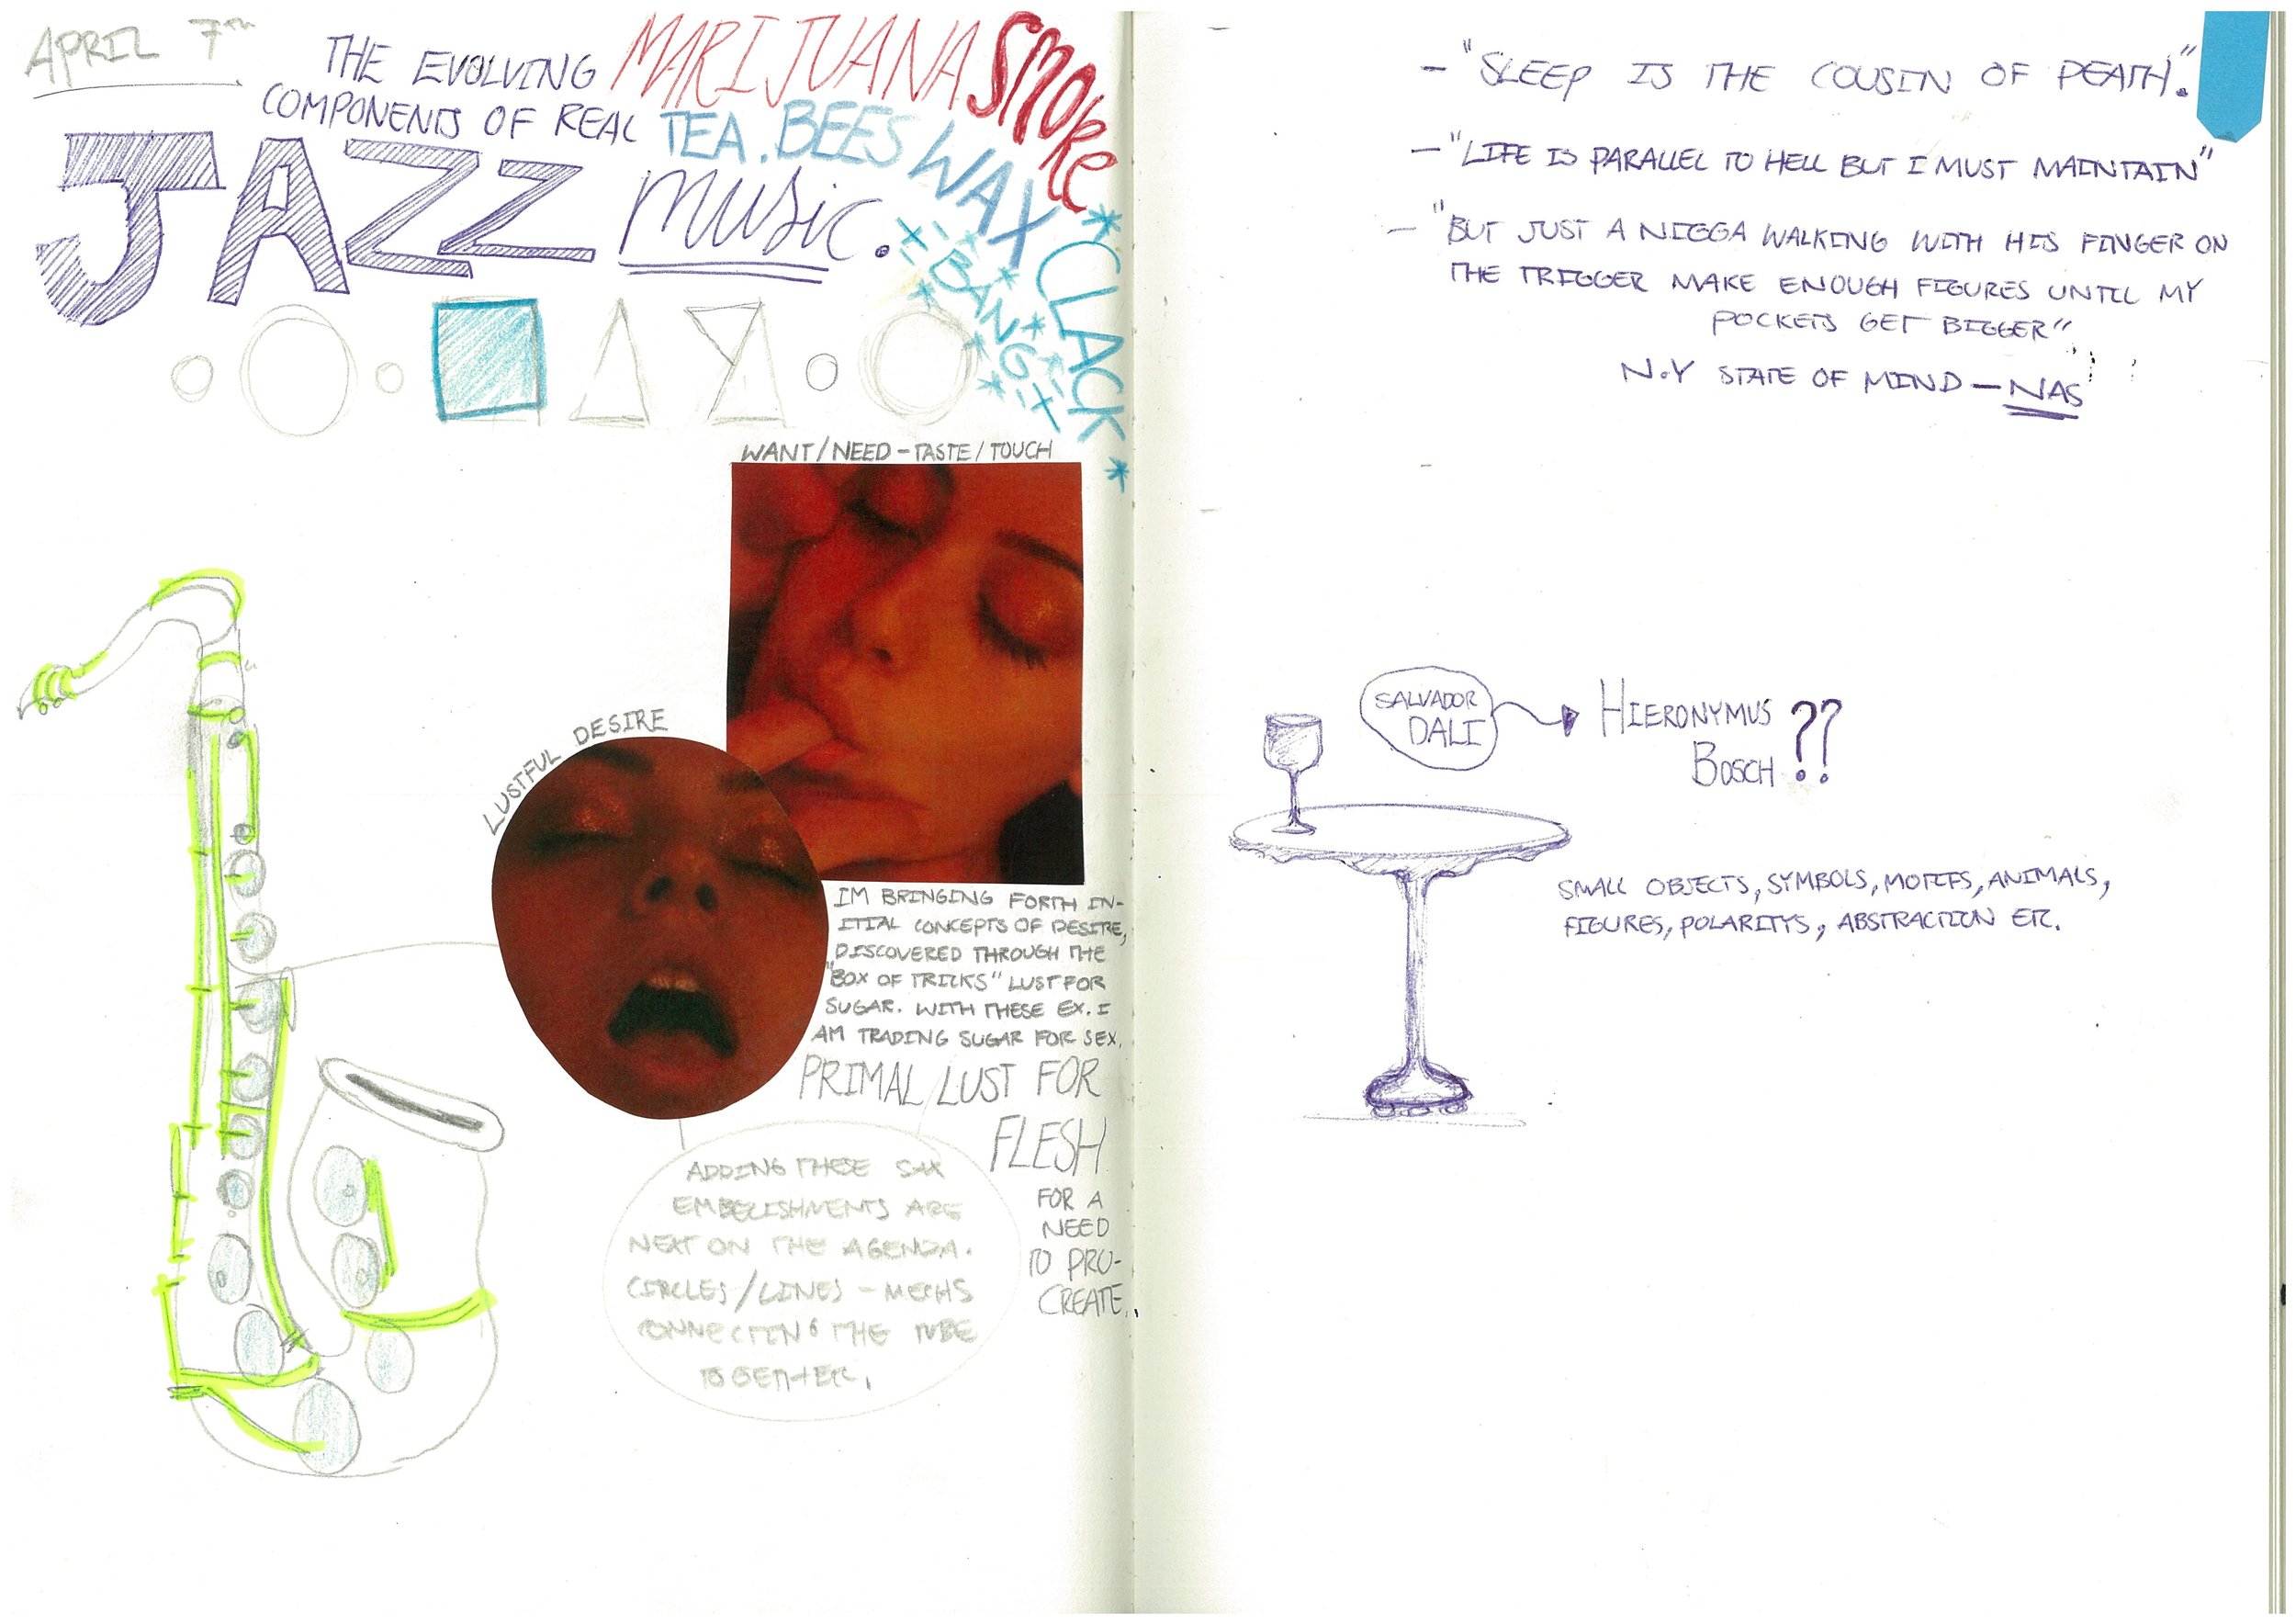 APRIL 7TH
THE EVOLVING
COMPONENTS OF REAL
JAZZ music.
MARIJUANA SMOKE
TEA. BEES WAX
*CLACK*
BANG
WANT/NEED - TASTE/TOUCH
LUSTFUL DESIRE
IM BRINGING FORTH IN-
ITIAL CONCEPTS OF DESIRE,
DISCOVERED THROUGH THE
"BOX OF TRICKS" LUST FOR
SUGAR. WITH THESE EX. I
AM TRADING SUGAR FOR SEX.
PRIMAL LUST FOR
FLESH
FOR A
NEED
TO PRO-
CREATE.
ADDING THESE SAX
EMBELISHMENTS ARE
NEXT ON THE AGENDA.
CIRCLES/LINES - MECHS
CONNECTING THE TUBE
TOGETHER.
- "SLEEP IS THE COUSIN OF DEATH."
- "LIFE IS PARALLEL TO HELL BUT I MUST MAINTAIN"
- "BUT JUST A NIGGA WALKING WITH HIS FINGER ON
THE TRIGGER MAKE ENOUGH FIGURES UNTIL MY
POCKETS GET BIGGER"
N.Y STATE OF MIND - NAS
SALVADOR
DALI
HIERONYMUS
BOSCH ??
SMALL OBJECTS, SYMBOLS, MOTIFS, ANIMALS,
FIGURES, POLARITYS, ABSTRACTION ETC.